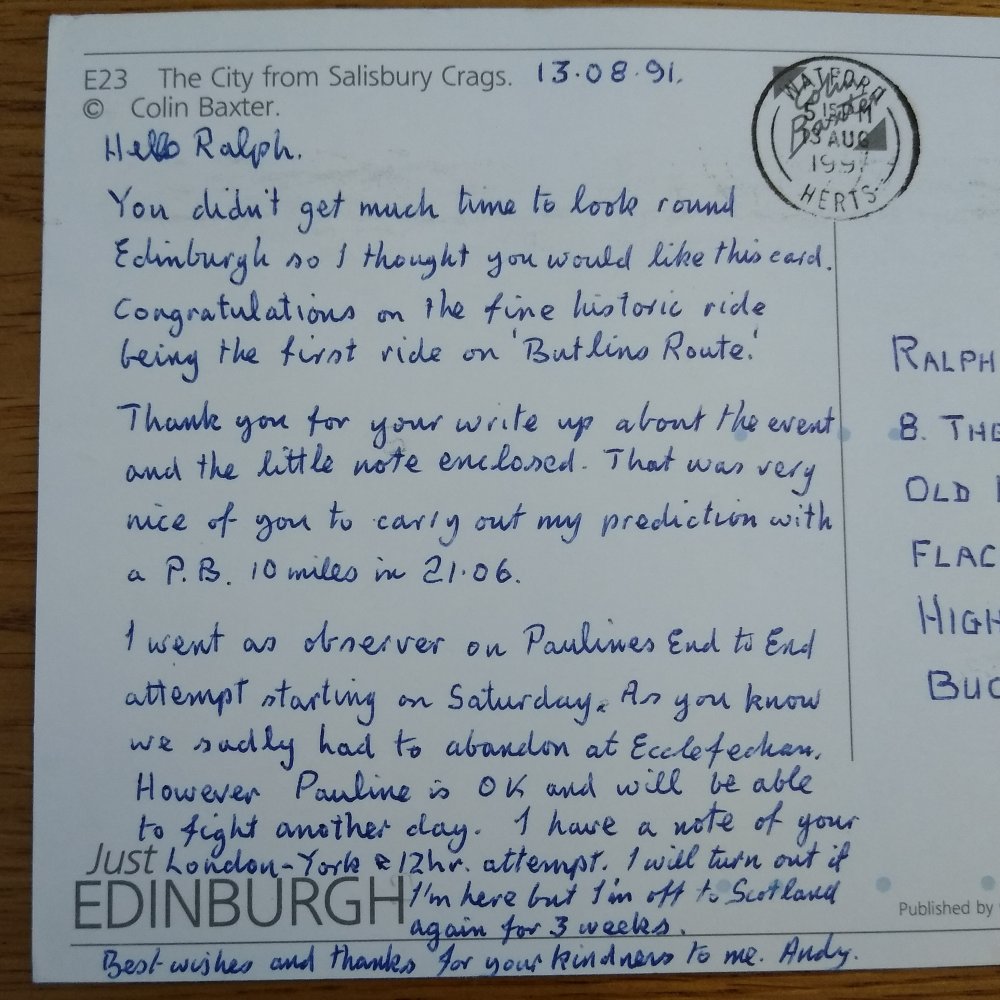 E23 The City from Salisbury Crags. 13.08.91.
© Colin Baxter.
WATFORD
AUG
1991
HERTS.
Hello Ralph.
You didn't get much time to look round
Edinburgh so I thought you would like this card.
Congratulations on the fine historic ride
being the first ride on 'Butlins Route.'
Thank you for your write up about the event
and the little note enclosed. That was very
nice of you to carry out my prediction with
a P.B. 10 miles in 21.06.
I went as observer on Paulines End to End
attempt starting on Saturday. As you know
we sadly had to abandon at Ecclefechan.
However Pauline is OK and will be able
to fight another day. I have a note of your
London-York & 12hr. attempt. I will turn out if
I'm here but I'm off to Scotland
again for 3 weeks.
Best wishes and thanks for your kindness to me. Andy.
Just
EDINBURGH
RALPH
8. THE
OLD
FLAC
HIGH
BUC
Published by